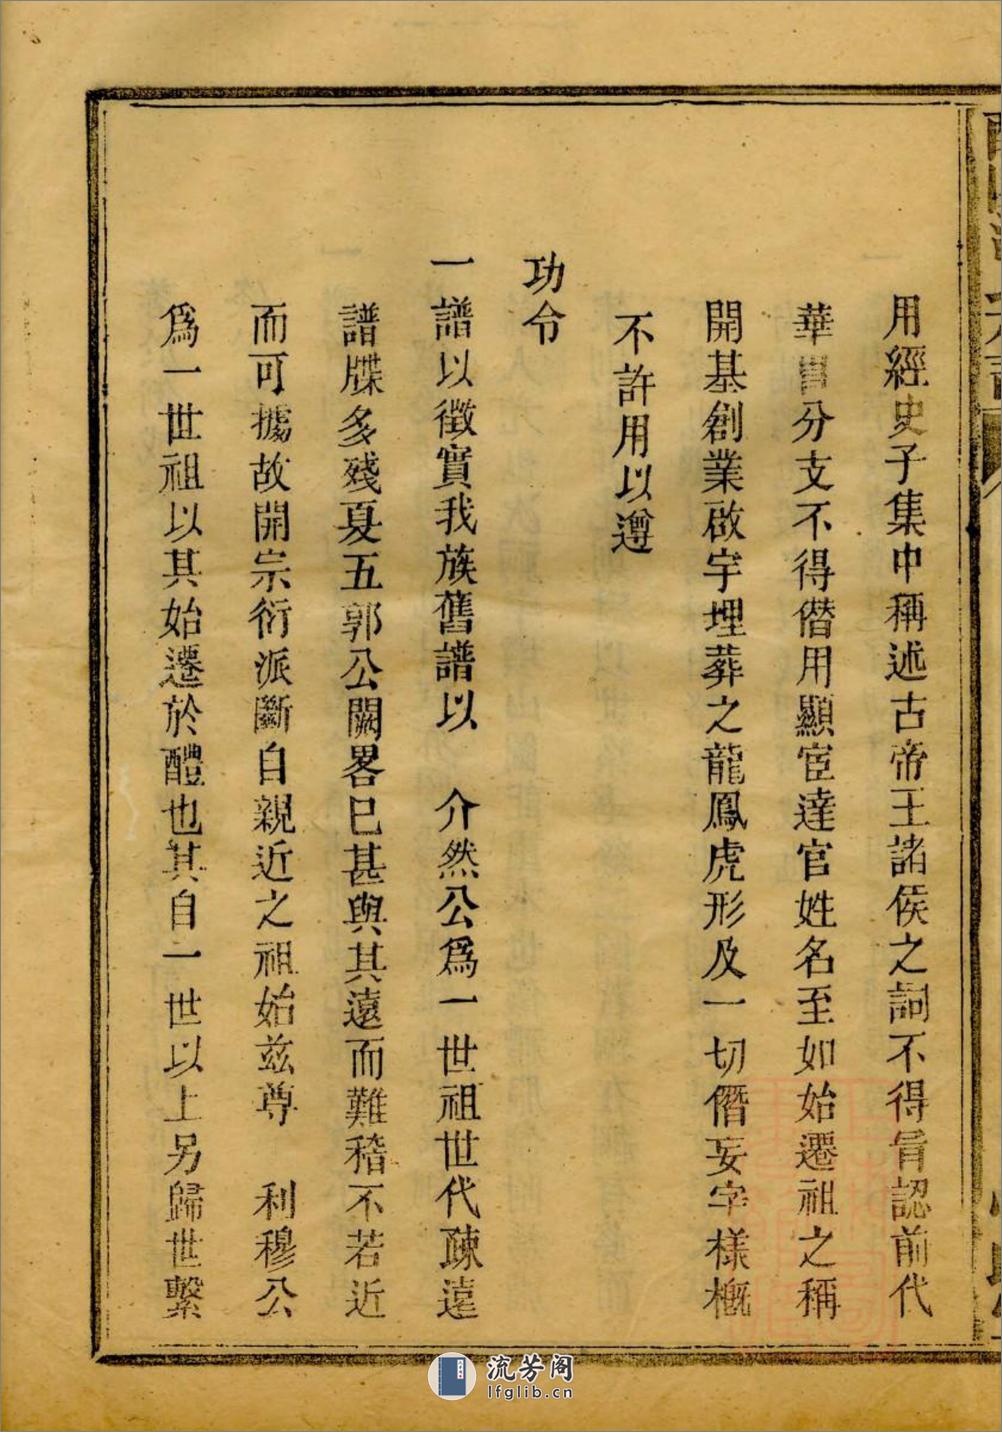 用經史子集中稱述古帝王諸侯之詞不得冐認前代
華冑分支不得僭用顯宦達官姓名至如始遷祖之稱
開基創業啟宇埋葬之龍鳳虎形及一切僭妄字樣槪
不許用以遵
功令
一譜以徵實我族舊譜以 介然公爲一世祖世代疎遠
譜牒多殘夏五郭公闕畧已甚與其遠而難稽不若近
而可據故開宗衍派斷自親近之祖始兹尊 利穆公
爲一世祖以其始遷於醴也其自一世以上另歸世繫
流芳阁
lfglib.cn